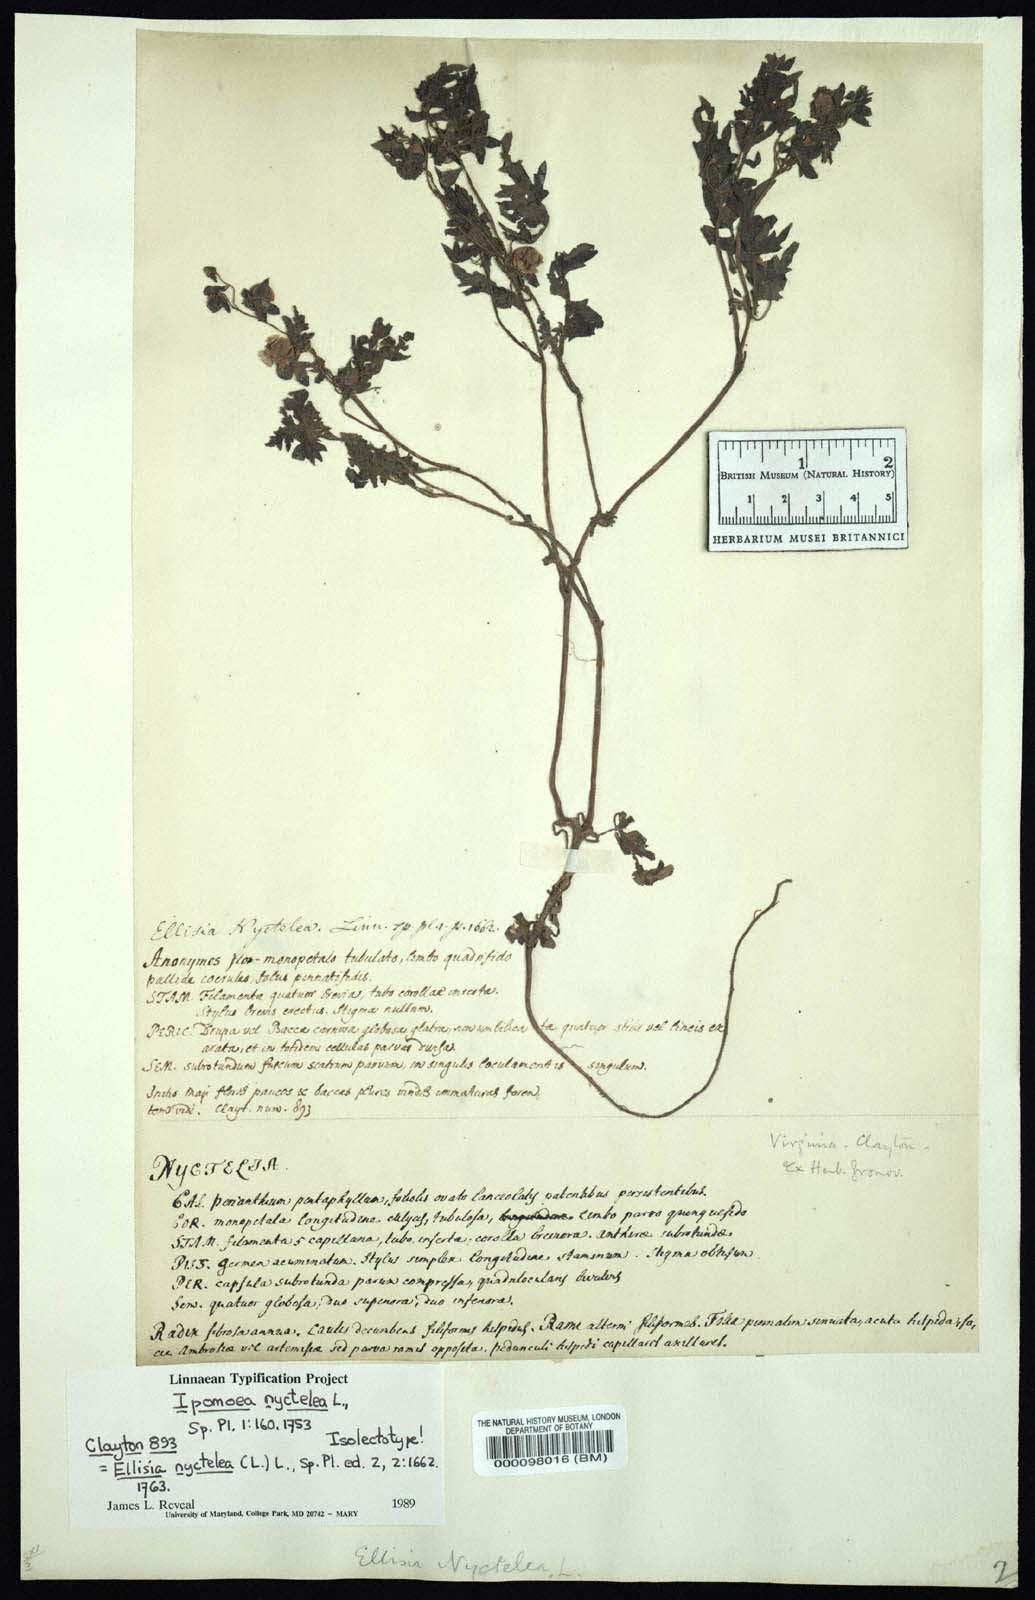 1 2
BRITISH MUSEUM (NATURAL HISTORY)
1 2 3 4 5
HERBARIUM MUSEI BRITANNICI
Ellisia Nyctelea. Linn. sp. pl. p. 1662.
Anonymos flore monopetalo tubulato, limbo quadrifido
pallide coeruleo, foliis pinnatifidis.
STAM. Filamenta quatuor brevia, tubo corollæ inserta.
Stylus brevis erectus. Stigma nullum.
PERIC. Drupa vel Bacca cornea globosa glabra, non umbilicata quatuor striis vel lineis ex
arata, et in totidem cellulas parvas divisa.
SEM. subrotundum fuscum scabrum parvum, in singulis loculamentis singulum.
Initio Maji flores paucos & baccas plures virides immaturas feren
tem vidi. Clayt. num. 893
Virginia - Clayton -
Ex Herb. Gronov.
NYCTELEA.
CAL. perianthium pentaphyllum, foliolis ovato lanceolatis patentibus persistentibus.
COR. monopetala longitudine calycis, tubulosa, limbo parvo quinquefido
STAM. filamenta 5 capillaria, tubo inserta, corolla breviora. antheræ subrotundæ
PIST. germen acuminatum. Stylus simplex longitudine staminum. Stigma obtusum
PER. capsula subrotunda parum compressa, quadrilocularis bivalvis
Sem. quatuor globosa, duo superiora, duo inferiora.
Radix fibrosa annua. Caulis decumbens filiformis hispidus. Rami alterni filiformes. Folia pinnatim sinuata, acuta hispida,
Ambrosiæ vel artemisiæ sed parva ramis opposita. pedunculi hispidi capillares axillares.
Linnaean Typification Project
Ipomoea nyctelea L.,
Sp. Pl. 1:160. 1753
Clayton 893 Isolectotype!
= Ellisia nyctelea (L.) L., Sp. Pl. ed. 2, 2:1662.
1763.
James L. Reveal 1989
University of Maryland, College Park, MD 20742 – MARY
THE NATURAL HISTORY MUSEUM, LONDON
DEPARTMENT OF BOTANY
000098016 (BM)
Ellisia Nyctelea, L.
2